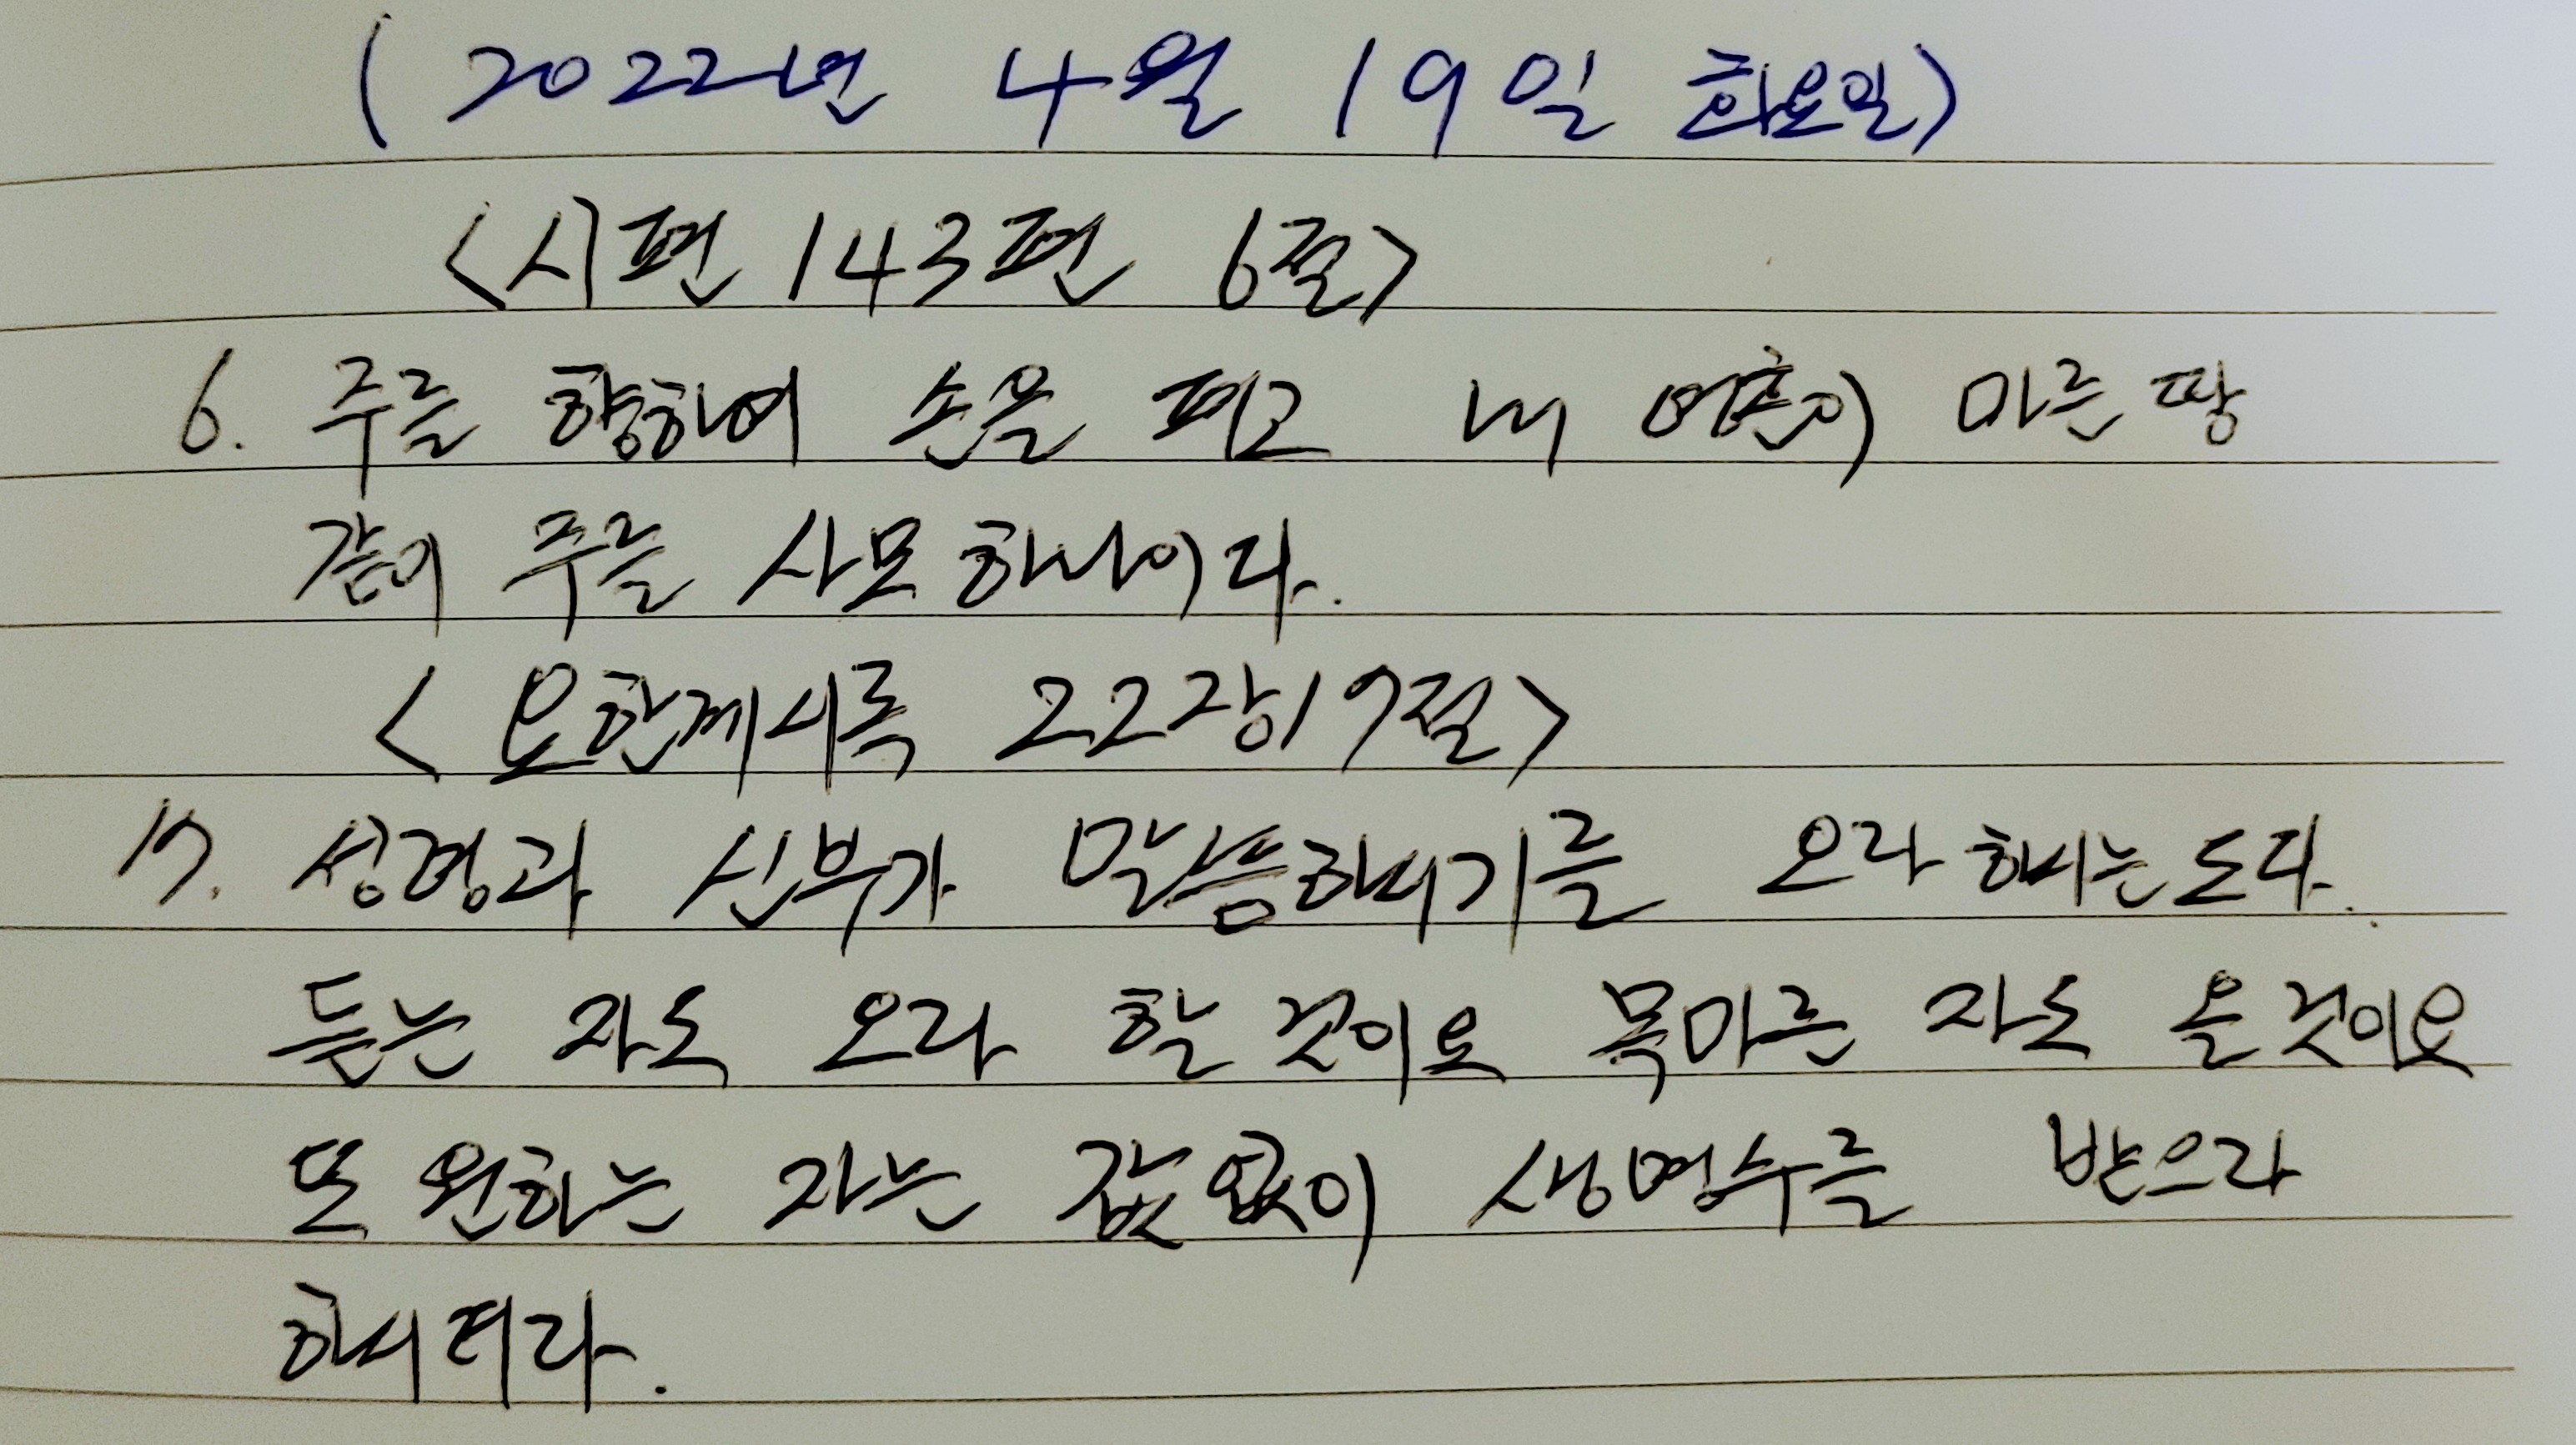 (2022년 4월 19일 화요일)
<시편 143편 6절>
6. 주를 향하여 손을 펴고 내 영혼이 마른 땅
같이 주를 사모하나이다.
<요한계시록 22장17절>
17. 성령과 신부가 말씀하시기를 오라 하시는도다.
듣는 자도 오라 할 것이요 목마른 자도 올것이요
또 원하는 자는 값없이 생명수를 받으라
하시더라.